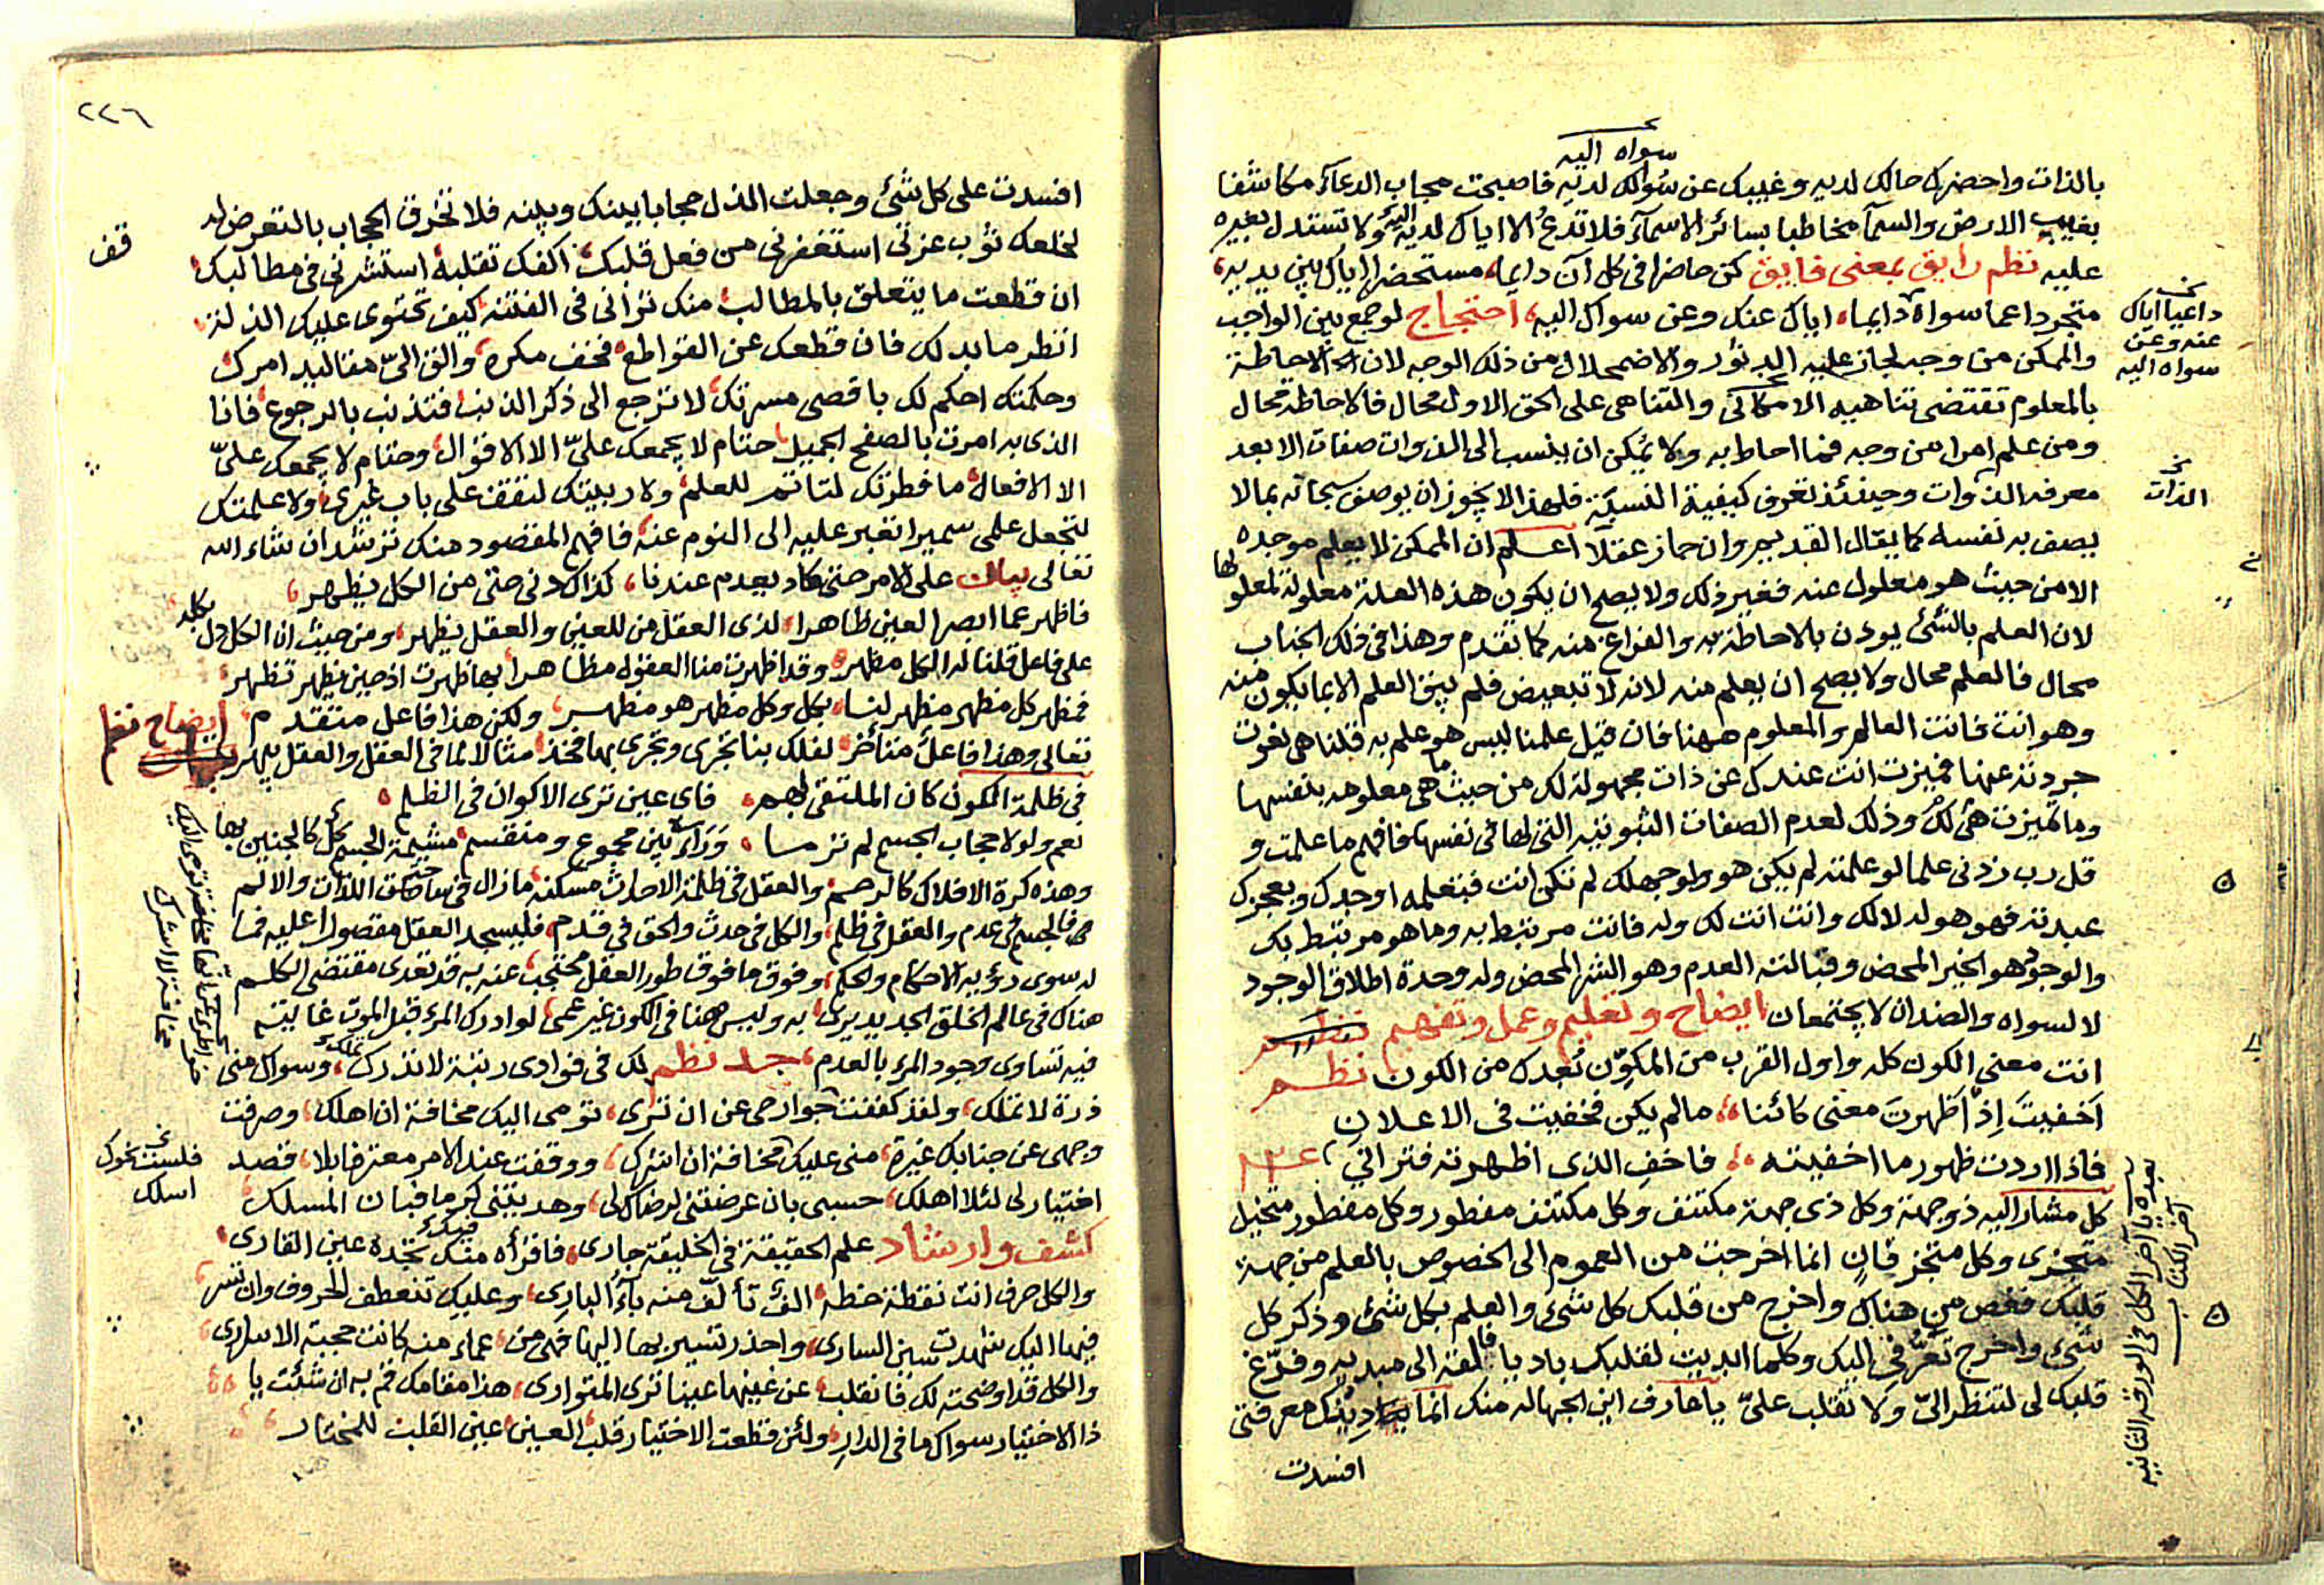 سواه اليه
بالذات واحضرك حالك لديه وغيبك عن سؤالك لديه فاصبحت مجاب الدعآء مكاشفا
بغيب الارض والسمآ مخاطبا بسائر الاسمآء فلا تدعُ الا اياك لديه ولا تستدل بغيره
عليه نظم رايق بمعنى فايق كن حاضرا فى كل آن دايما، مستحضرا اياك بين يديه،
متجردا عما سواه دايما، اياك عنك وعن سواك اليه، احتجاج لو جمع بين الواجب
والممكن من وجه لجاز عليه الدثور والاضمحلال من ذلك الوجه لان الاحاطة
بالمعلوم تقتضى تناهيه الامكانى والتناهى على الحق الاول محال فالاحاطة محال
ومن علم امرا من وجه فما احاط به ولا يمكن ان ينسب الى الذوات صفات الا بعد
معرفه الذوات وحينئذ تعرف كيفية النسبة فلهذا لا يجوز ان يوصف سبحانه بما لا
يصف به نفسه كما يقال القديم وان جاز عقلا اعلم ان الممكن لا يعلم موجده
الا من حيث هو معلول عنه فغير ذلك ولا يصح ان يكون هذه العلة معلولة لمعلولها
لان العلم بالشئ يوذن بالاحاطة به والفراغ منه كما تقدم وهذا فى ذلك الجناب
محال فالعلم محال ولا يصح ان يعلم منه لانه لا تبعيض فلم يبق العلم الا بما يكون منه
وهو انت فانت العالم والمعلوم ههنا فان قيل علمنا ليس هو علم به قلنا هى نعوت
جردته عنها فميزت انت عندك عن ذات مجهولة لك من حيث ما هى معلومه بنفسها
وما تميزت هى لك وذلك لعدم الصفات الثبوتيه التى لها فى نفسها فافهم ما علمت و
قل رب زدنى علما لو علمته لم يكن هو ولو جهلك لم تكن انت فبتعلمه اوجدك وبعجزك
عبدته فهو هو له لا لك وانت انت لك وله فانت مرتبط به وما هو مرتبط بك
والوجود هو الخير المحض وقبالته العدم وهو الشر المحض وله وحدة اطلاق الوجود
لا لسواه والضدان لا يجتمعان ايضاح وتعليم وعمل وتفهيم
انت معنى الكون كله واول القرب من المكوّن بُعدك من الكون نظم
اخفيتَ اِذ اظهرتَ معنى كائنا، ما لم يكن فخفيت فى الاعلان
فاذا اردت ظهور ما اخفيته، فاخفِ الذى اظهرته فترانى
كل مشار اليه ذو جهة وكل ذى جهة مكتنف وكل مكتنف مفطور وكل مفطور متخيل
متجزى وكل متجز فانٍ انما اخرجت من العموم الى الخصوص بالعلم من جهة
قلبك فغص من هناك واخرج من قلبك كل شئ والعلم بكل شئ وذكر كل
شئ واخرج تعرُّفى اليك وكلما ابديت لقلبك باديا فالقه الى مبديه وفرّغ
قلبك لى لتنظر الىّ ولا تقلب علىّ يا عارف اين الجهاله منك انما معرفتى
افسدت
نخ داعيا اياك
عنه وعن
سواه اليه
نخ
الذات
بعده يا آخر الكل فى الورقة الثانيه
آخر الكتاب
٢٢٦
افسدت على كل شئ وجعلت الذل حجابا بينك وبينه فلا تخرق الحجاب بالتعرض له
لخلعك ثوب عزتى استغفرنى من فعل قلبك، اكفك تقلبه استشرنى فى مطالبك
ان قطعت ما يتعلق بالمطالب منك ترانى فى الفتنه كيف تحتوى عليك الذله
انظر ما بد لك فان قطعك عن القواطع فخف مكره، والق الىّ مقاليد امرك
وحكمتك احكم لك باقصى مسرتك، لا ترجع الى ذكر الذنب فتذنب بالرجوع فانا
الذى به امرت بالصفح الجميل حتام لا يجمعك علىّ الا الاقوال، وحتام لا يجمعك علىّ
الا الافعال ما فطرتك لتاتم للعلم، ولا ربيتك لتقف على باب غيرى، ولا علمتك
لتجعل علمى سميرا تعبر عليه الى النوم عنه، فافهم المقصود منك ترشد ان شاء الله
تعالى بيان على الامر حتى كاد يعدم عندنا، كذاك دنى حتى من الكل يظهر،
فاظهر عما ابصر العين ظاهرا، لذى العقل من للعين والعقل يظهر، ومن حيث ان الكل دل
على فاعل قلنا له الكل مظهر، وقد اظهرت منا العقول مظاهرا بها ظهرت اذ حين يظهر تظهر
فمظهر كل مظهر مظهر لنا، بكل وكل مظهر هو مظهر، ولكن هذا فاعل متقدم
تعالى وهذا فاعل متأخر، لفلك بنا تجرى وتجرى بها فخذ مثالا لما فى العقل والعقل يبهر ايضاح نظم
فى ظلمة الكون كان الملتقى لهم، فاى عين ترى الاكوان فى الظلم
نعم ولولا حجاب الجسم لم ترسا، وَرَاء بين مجموع ومنقسم مشيمة الجسم كل كالجنين بها
وهذه كرة الافلاك كالرحم والعقل فى ظلمة الاحداث مسكنه، ما زال فى ساحتى اللذات والالم
فالجسم فى عدم والعقل فى ظلم، والكل فى حدث والحق فى قدم، فليسجد العقل مقصورا عليه فما
له سوى رؤية الاحكام والحكم، وفوق ما فوق طور العقل محتجب، عنه به قد تعدى مقتضى الكلم
هناك فى عالم الخلق الجديد يرى، به وليس ههنا فى الكون غير عمى، لو ادرك المرء قبل الموت غايته
فيه تساوى وجود المرء بالعدم، نظم لك فى فؤادى رتبة لا تدرك، وسواك منى
ذرة لا تملك، ولقد كففت جوارحى عن ان ترى، تومى اليك مخافة ان اهلك، وصرفت
وجهى عن جنابك غيرة، منى عليك مخافة ان اشرك، ووقفت عند الامر معترفا بلا، قصد
اختيار لى لئلا اهلك، حسبى بان عرضتنى لرضاك لى، وهديتنى كرما فبان المسلك
كشف وارشاد علم الحقيقة فى الخليقة جارى، فاقرأه منك تجده عين القارى،
والكل حرف انت نقطة خطه، الف تألف منه بآءُ البارى، وعليك تنعطف الحروف وان تسر،
فيها اليك شهدت سين السارى، واحذر تسير بها اليها فهى من، عماء منه كانت حجبة الاسرارى،
والكل قد اوضحته لك فانقلب، عن عينها عينا ترى المتوارى، هذا مقامك قم به ان شئت يا
ذا الاختيار سواك ما فى الدار، ولئن قطعت الاختيار قلب العين عين القلب للمختار
قف
نخ
فلست نحوك
اسلك
مخافة لا اشرك